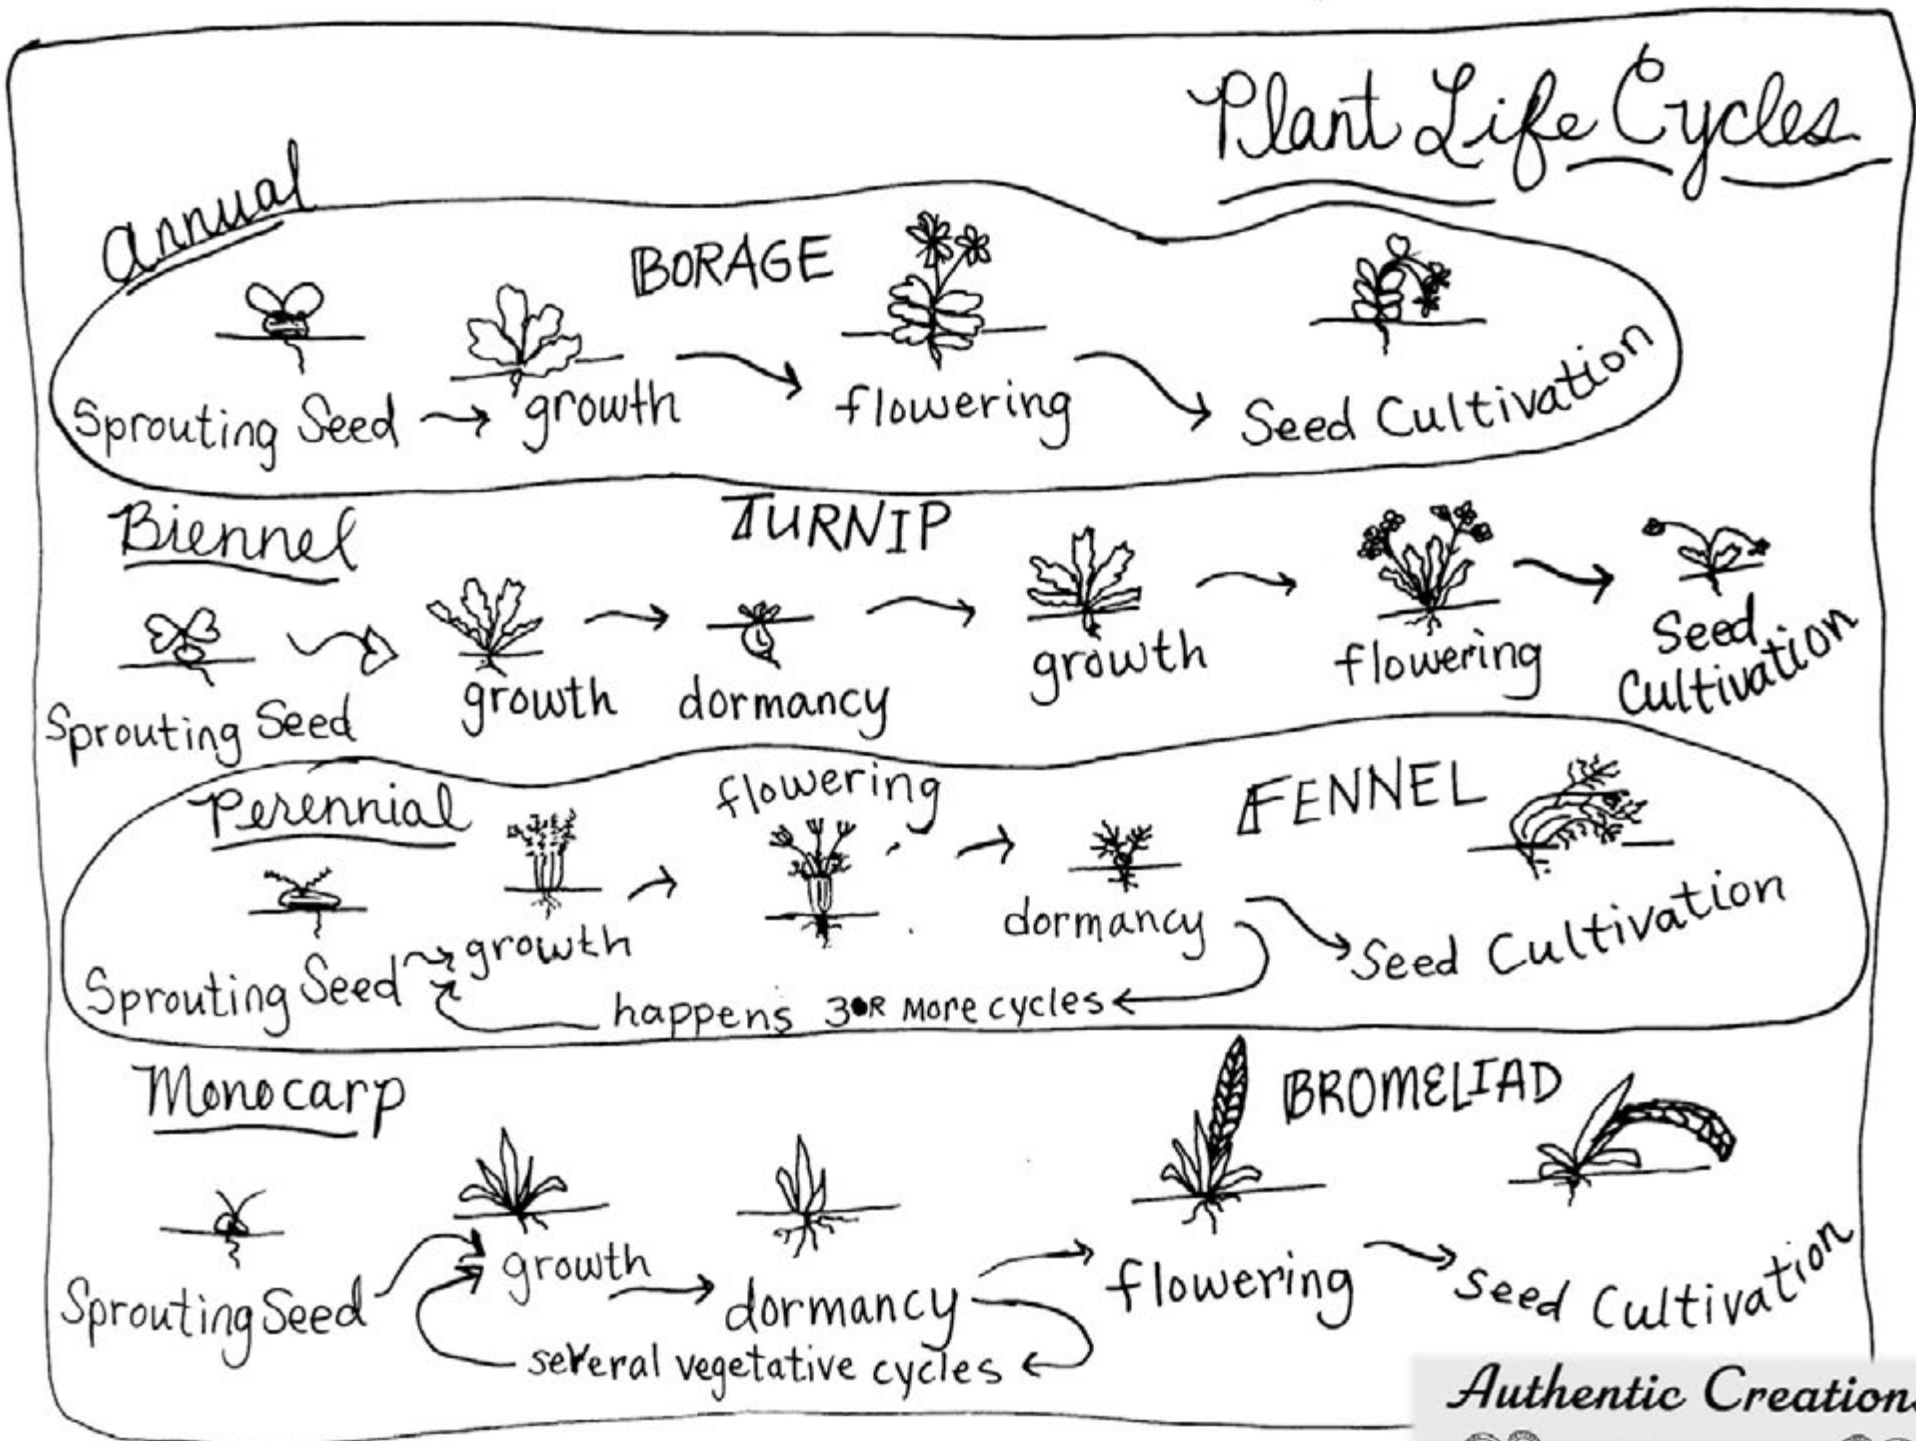 Plant Life Cycles
Annual
BORAGE
Sprouting Seed → growth → flowering → Seed Cultivation
Biennel
TURNIP
Sprouting Seed → growth → dormancy → growth → flowering → Seed
Cultivation
Perennial
flowering
FENNEL
Sprouting Seed → growth → → dormancy → Seed Cultivation
happens 3 OR More cycles
Monocarp
BROMELIAD
Sprouting Seed → growth → dormancy → flowering → seed Cultivation
several vegetative cycles
Authentic Creations